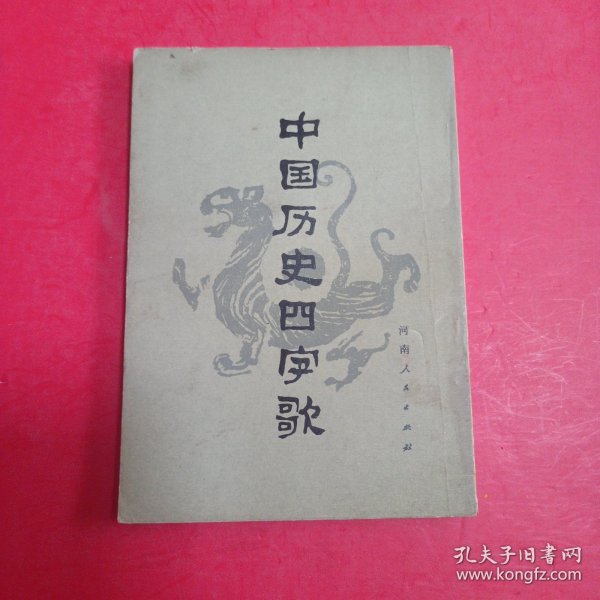 中国历史四字歌
河南人民出版社
孔夫子旧书网
www.kongfz.com